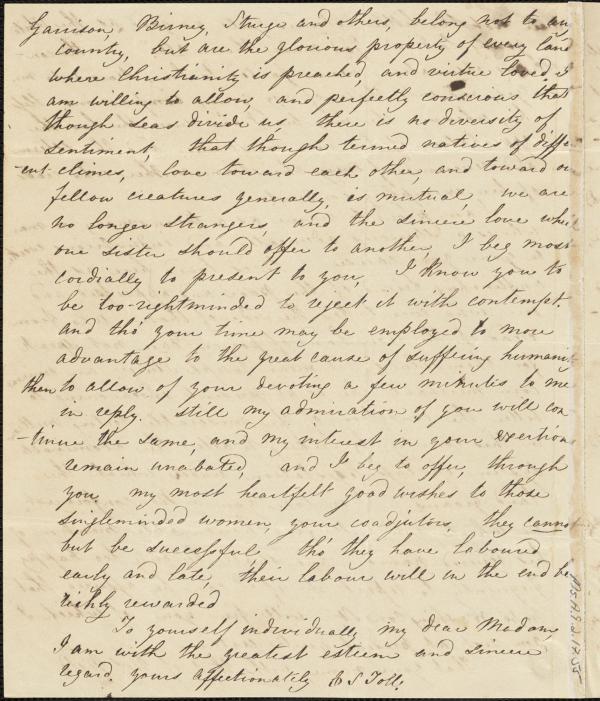 Garrison, Birney, Sturge and others, belong not to any
country, but are the glorious property of every land
where Christianity is preached, and virtue loved, I
am willing to allow, and perfectly conscious that
though seas divide us, there is no diversity of
sentiment, that though termed natives of differ
-ent climes, love toward each other, and toward our
fellow creatures generally, is mutual, we are
no longer strangers, and the sincere love which
one sister should offer to another, I beg most
cordially to present to you, I know you to
be too rightminded to reject it with contempt.
and tho' your time may be employed to more
advantage to the great cause of suffering humanity
then to allow of your devoting a few minutes to me
in reply. Still my admiration of you will con
-tinue the same, and my interest in your exertions
remain unabated, and I beg to offer, through
you my most heartfelt good wishes to those
singleminded women, your coadjutors, they cannot
but be successful tho' they have laboured
early and late, their labour will in the end be
richly rewarded
To yourself individually my dear Madam
I am with the greatest esteem and sincere
regard. yours affectionately S Toll.
Ms.A.9.2.